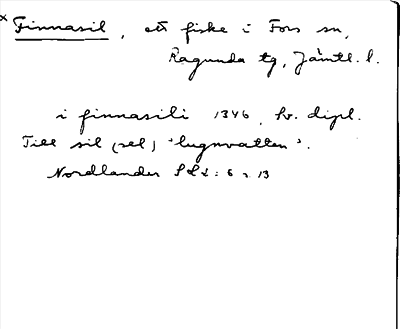 x Finnasil, ett fiske i Fors sn,
Ragunda tg, Jämtl. l.
i finnasili 1346, sv. dipl.
Till sil (sel) 'lugnvatten'.
Nordlander : 6 s. 13